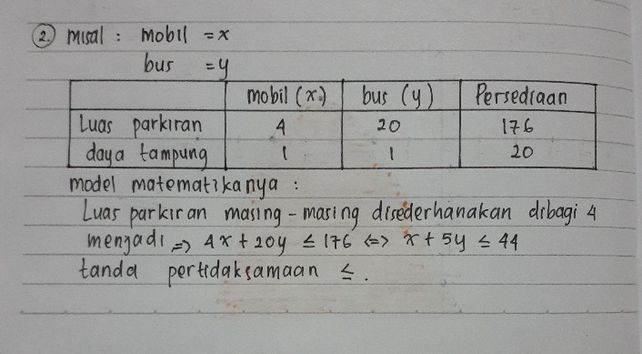 2. misal : mobil = x
bus = y
mobil (x) bus (y) Persediaan
Luas parkiran 4 20 176
daya tampung 1 1 20
model matematikanya :
Luas parkiran masing - masing disederhanakan dibagi 4
menjadi => 4x + 20y ≤ 176 <=> x + 5y ≤ 44
tanda pertidaksamaan ≤ .